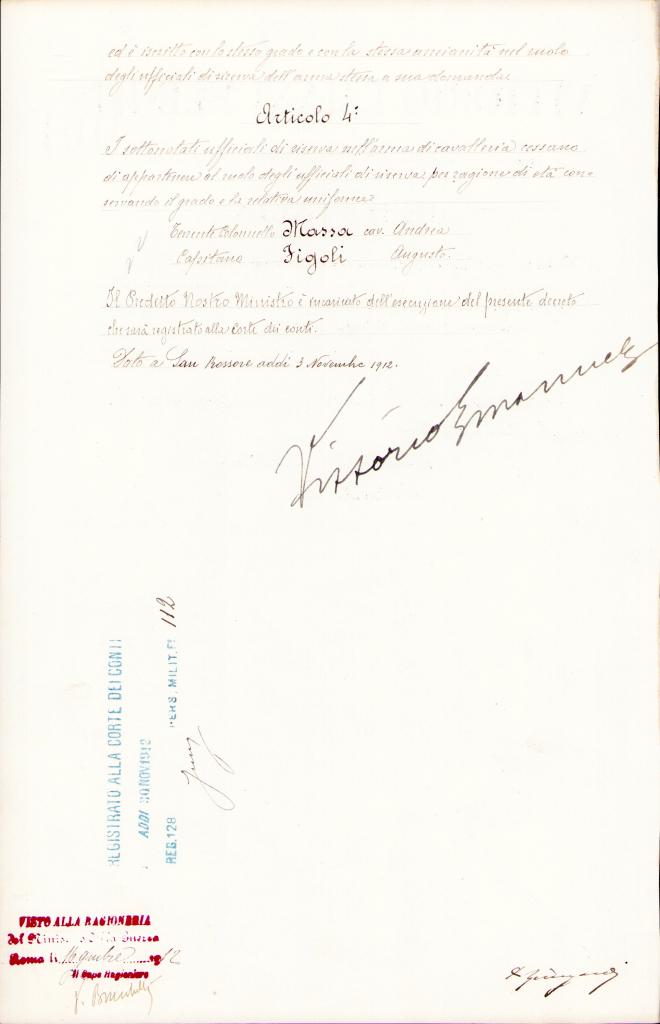 ed è iscritto con lo stesso grado e con la stessa anzianità nel ruolo
degli ufficiali di riserva dell'arma stessa a sua domanda.
Articolo 4º
I sottonotati ufficiali di riserva nell'arma di cavalleria cessano
di appartenere al ruolo degli ufficiali di riserva per ragione di età con=
servando il grado e la relativa uniforme
Tenente Colonnello Massa cav. Andrea
Capitano Figoli Augusto.
Il Predetto Nostro Ministro è incaricato dell'esecuzione del presente decreto
che sarà registrato alla Corte dei conti.
Dato a San Rossore addì 3 Novembre 1912.
Vittorio Emanuele
REGISTRATO ALLA CORTE DEI CONTI
ADDI 30 NOV 1912
REG. 128 PERS. MILIT. Fº 112
VISTO ALLA RAGIONERIA
del Ministero della Guerra
Roma li 1912
Il Capo Ragioniere